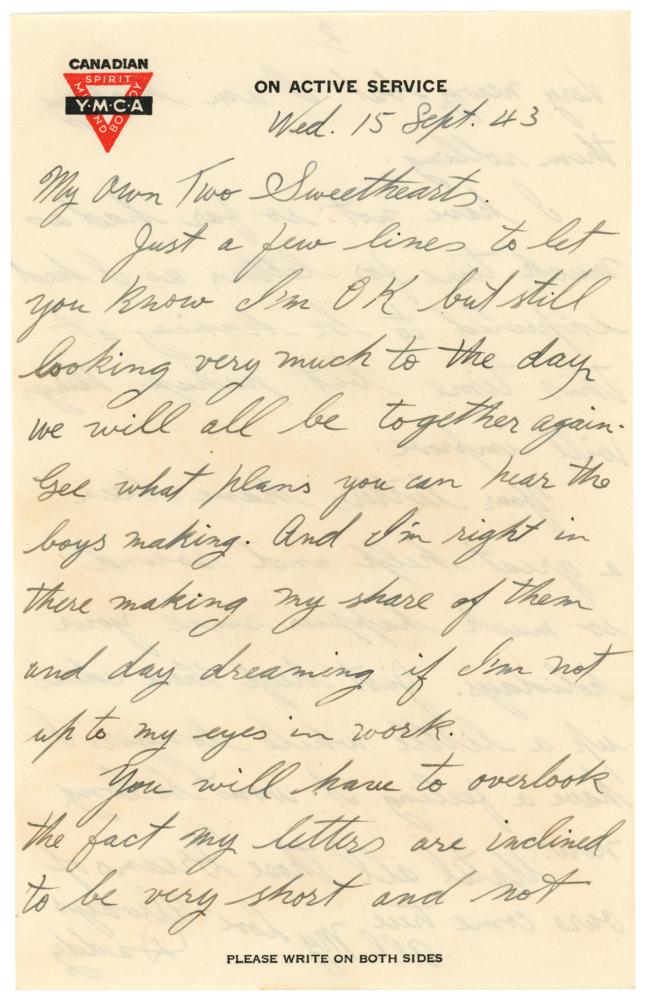 CANADIAN
SPIRIT
MIND
BODY
Y·M·C·A
ON ACTIVE SERVICE
Wed. 15 Sept. 43
My Own Two Sweethearts.
Just a few lines to let
you know I'm OK but still
looking very much to the day
we will all be together again.
Gee what plans you can hear the
boys making. And I'm right in
there making my share of them
and day dreaming if I'm not
up to my eyes in work.
You will have to overlook
the fact my letters are inclined
to be very short and not
PLEASE WRITE ON BOTH SIDES